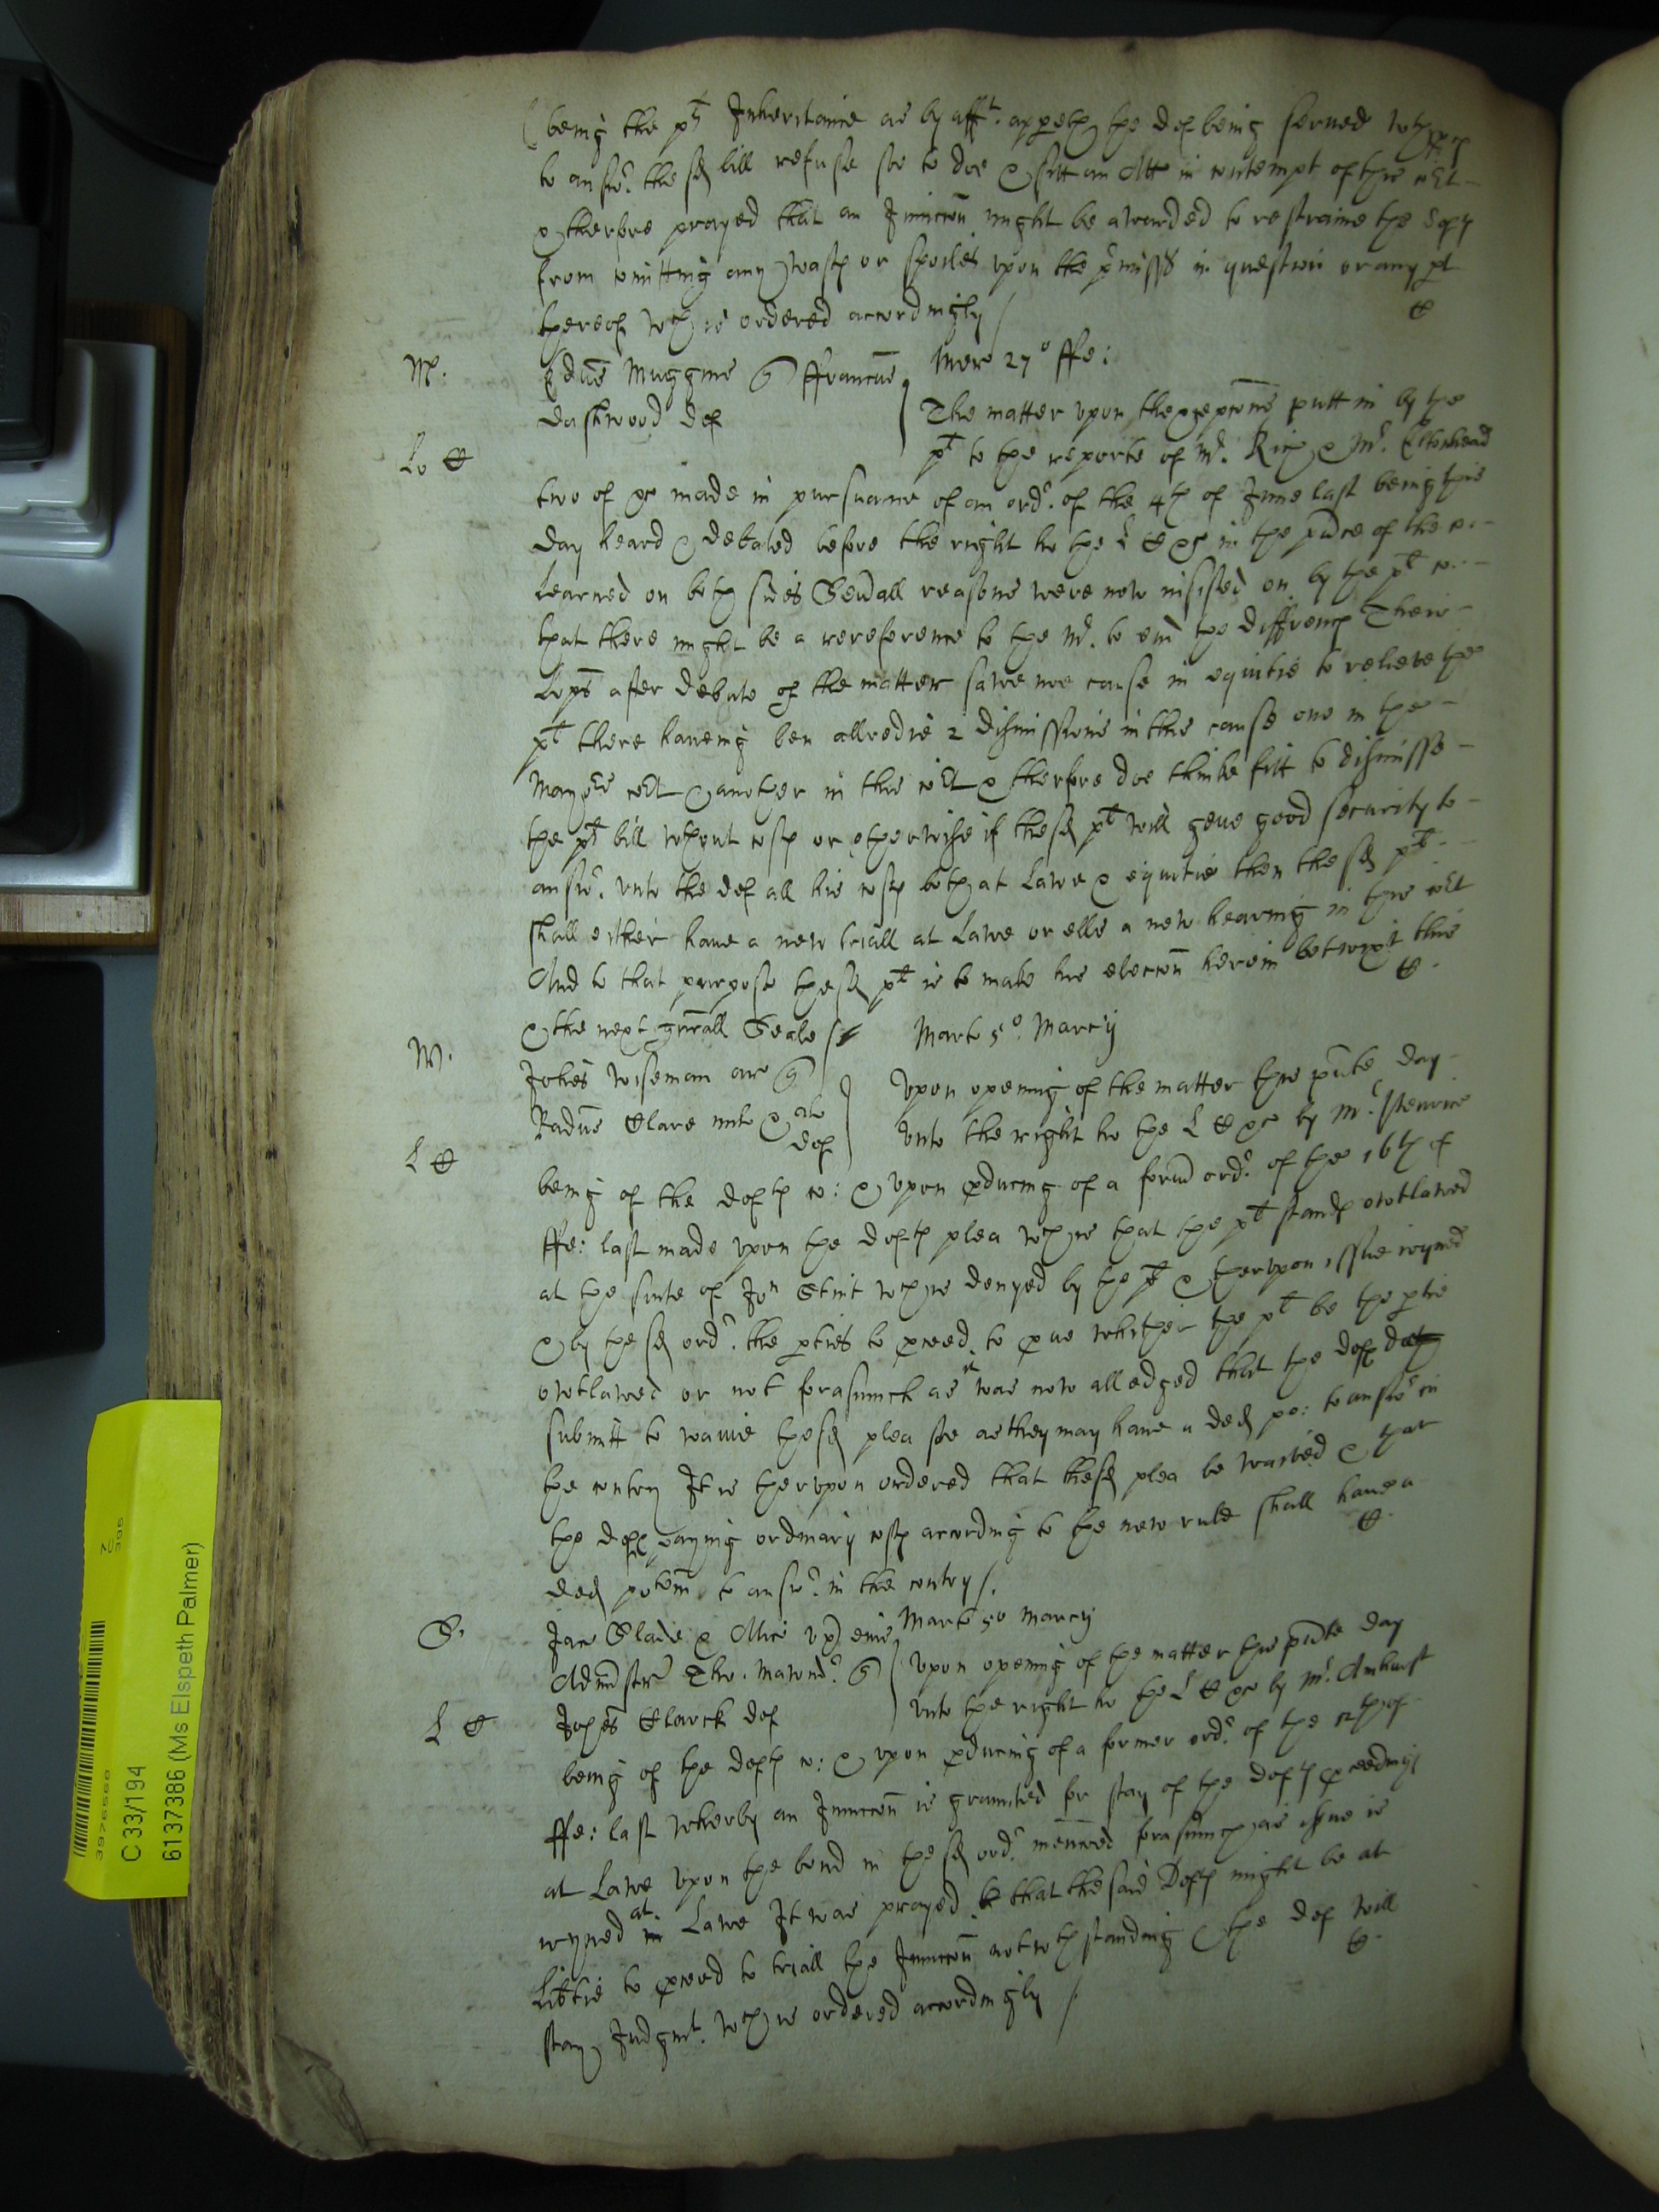 being the pts Inheritance as by afft. appeth the def being served wth pces
to answr. the sd bill refuse soe to doe & sitt an Att in contempt of this cort
& therfore prayed that an Iniuccon might be awarded to restraine the defts
from comitting any wasts or spoiles upon the pmisss in question or any pt
therof wch is ordered accordingly /
M:
Edus Muggins q Franciscus
Dashwood def
Mer 27o ffe:
The matter upon the excepcons putt in by the
Lo C
pt to the reporte of Mr. Rich & Mr. Eltonhead
two of &c made in pursuance of an ordr. of the 4th of June last being this
day heard & debated before the right ho the L C &c in the pnce of the c.
learned on both sides Sevall reasons were now insisted on by the pt c.
that there might be a rereference to the Mr. to end the differences Their
Lopps after debate of the matter sawe noe cause in equitie to releive the
pt there haveing ben allredie 2 dismissions in this cause one in the
Mayors cort & another in this cort & therfore doe thinke fitt to dismisse
the pt bill wthout costs or otherwise if the sd pt will geve good security to
answr. unto the def all his costs both at Lawe & equitie then the sd pt
shall either have a new triall at Lawe or ells a new hearing in this cort
And to that purpose the sd pt is to make his eleccon herein betwixt this
& the next gnrall Seale /
M.
Johes Wiseman ar q
Radus Clare mil & al
def
Mart 5o. Marcij
Upon opening of the matter this pnte day
unto the right ho the L C &c by Mr.
L C
being of the defts c: & upon pducing of a formr ordr. of the 16th of
ffe: last made upon the defts plea wch is that the pt stands owtlawed
at the suite of Jon Stint wch is denyed by the pt & therupon issue ioyned
& by the sd ordr. the pties to pceed to pve whither the pt be the ptie
owtlawed or not forasmuch as it was now alledged that the defts doth
submitt to waive the sd plea soe as they may have a ded po: to answr in
the contry It is therupon ordered that the sd plea be waived & that
the defts paying ordinary costs according to the new rule shall have a
ded potem to answr. in the contry /.
S.
Jac Slade & Alice ux eius
Adminstr Tho. q
Johes Clarck def
Mart 5o Marcij
Upon opening of the matter this pnte day
unto the right ho the L C &c by Mr. Amhurst
L C
being of the defts c: & upon pducing of a former ordr. of the 12th of
ffe: last wherby an Iniuccon is graunted for stay of the defts pceedings
at Lawe upon the bond in the sd ordr. mencoed forasmuch as issue is
ioyned in at Lawe It was prayed that the said Defts might be at
Libtie to pceed to triall the Iniuccon notwthstanding & the def will
stay Judgmt. wch is ordered accordingly /
C 33/194
6137386 (Ms Elspeth Palmer)